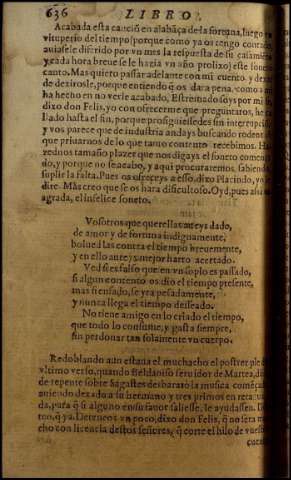 636 LIBRO
Acabada esta canciõ en alabãça de la fortuna, luego en
vituperio del tiempo (porque como ya os tengo contado
auiase le diferido por vn mes la respuesta de su casamiẽto
y cada hora breue se le hazia vn año prolixo) este sone
canto. Mas quiero passar adelante con mi cuento, y dexar
de dezirosle, porque entiendo q̃ os dara pena, como a mi
ha hecho en no verle acabado, Estremado soys por mi
dixo don Felis, yo con ofrecerme que preguntaros, he ca
llado hasta el fin, porque prosiguiessedes sin interrupciõ
y vos parece que de industria andays buscando rodeos
que priuarnos de lo que tanto contento recebimos. Ha
zednos tamaño plazer que nos digays el soneto comen
do, y porque no se acabo, y aqui procuraremos, sabiendo
suplir la falta. Pues os ofreceys a esso, dixo Placindo, yo le
dire. Mas creo que se os hara dificultoso. Oyd, pues assi
agrada, el infelice soneto.
Vosotros que querellas aueys dado,
de amor y de fortuna indignamente,
bolued las contra el tiempo breuemente,
y en ello aureys mejor harto acertado.
Ved si es falso que en vn soplo es passado,
si algun contento os dio el tiempo presente,
mas si ensado, se yra pesadamente,
y nunca llega el tiempo desseado.
No tiene amigo en lo criado el tiempo,
que todo lo consume, y gasta siempre,
sin perdonar tan solamente vn cuerpo.
Redoblando aun estaua el muchacho el postrer pie de
vltimo verso, quando Beldaniso seruidor de Martea, di
de repente sobre Sagastes desbarato la musica començada
auiendo dexado a su hermano y tres primos en reta
da, para q̃ si alguno en su fauor saliesse, le ayudassen.
ton. q̃ ya. Deteneos vn poco, dixo don Felis, q̃ no sera
cho con licencia destos señores, q̃ corte el hilo de vuestro
cuen